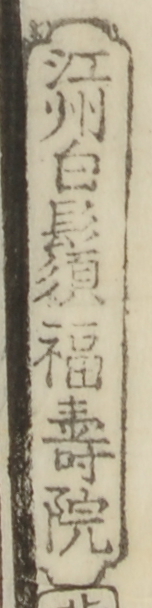 江州白鬚須福壽院